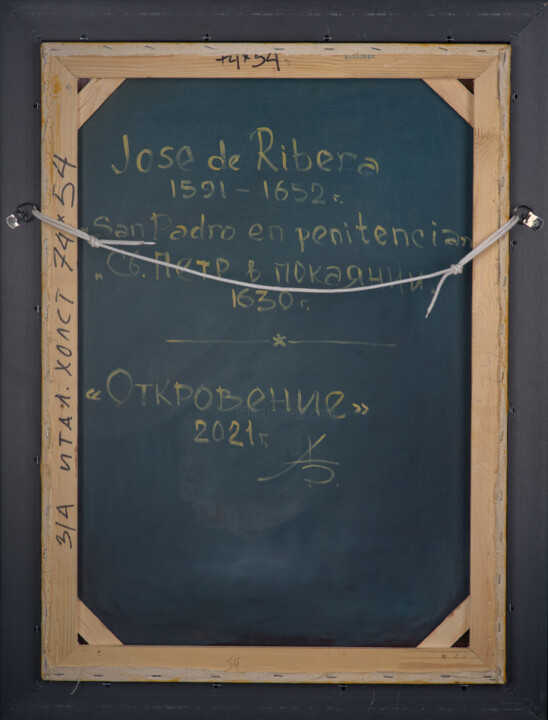 74×54
Jose de Ribera
1591 – 1652 г.
„San Padro en penitencian
„Св. Петр в покаянии"
1630 г.
*
«Откровение»
2021 г.
З/А ИТАЛ. ХОЛСТ 74×54
54